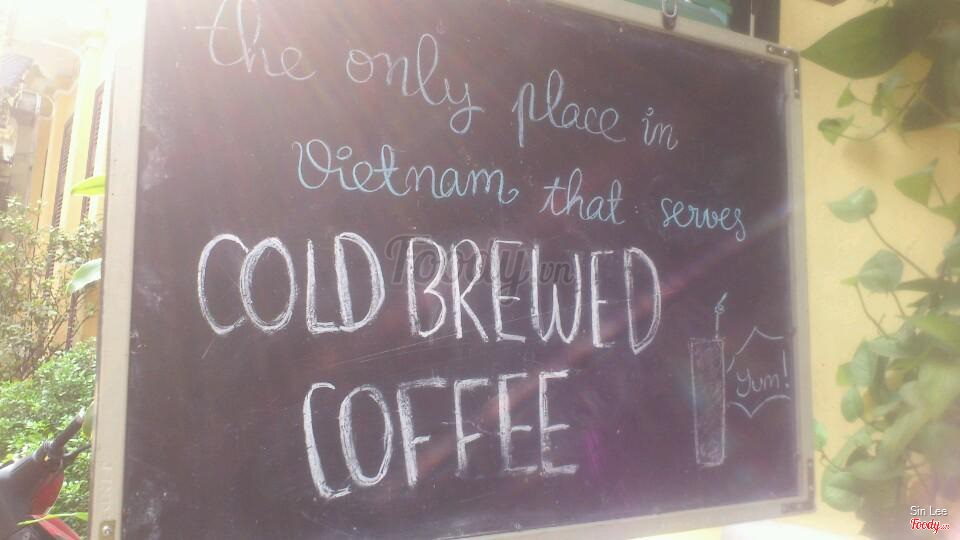 the only place in
Vietnam that serves
COLD BREWED
COFFEE
Yum!
Foody.vn
Sin Lee
Foody.vn